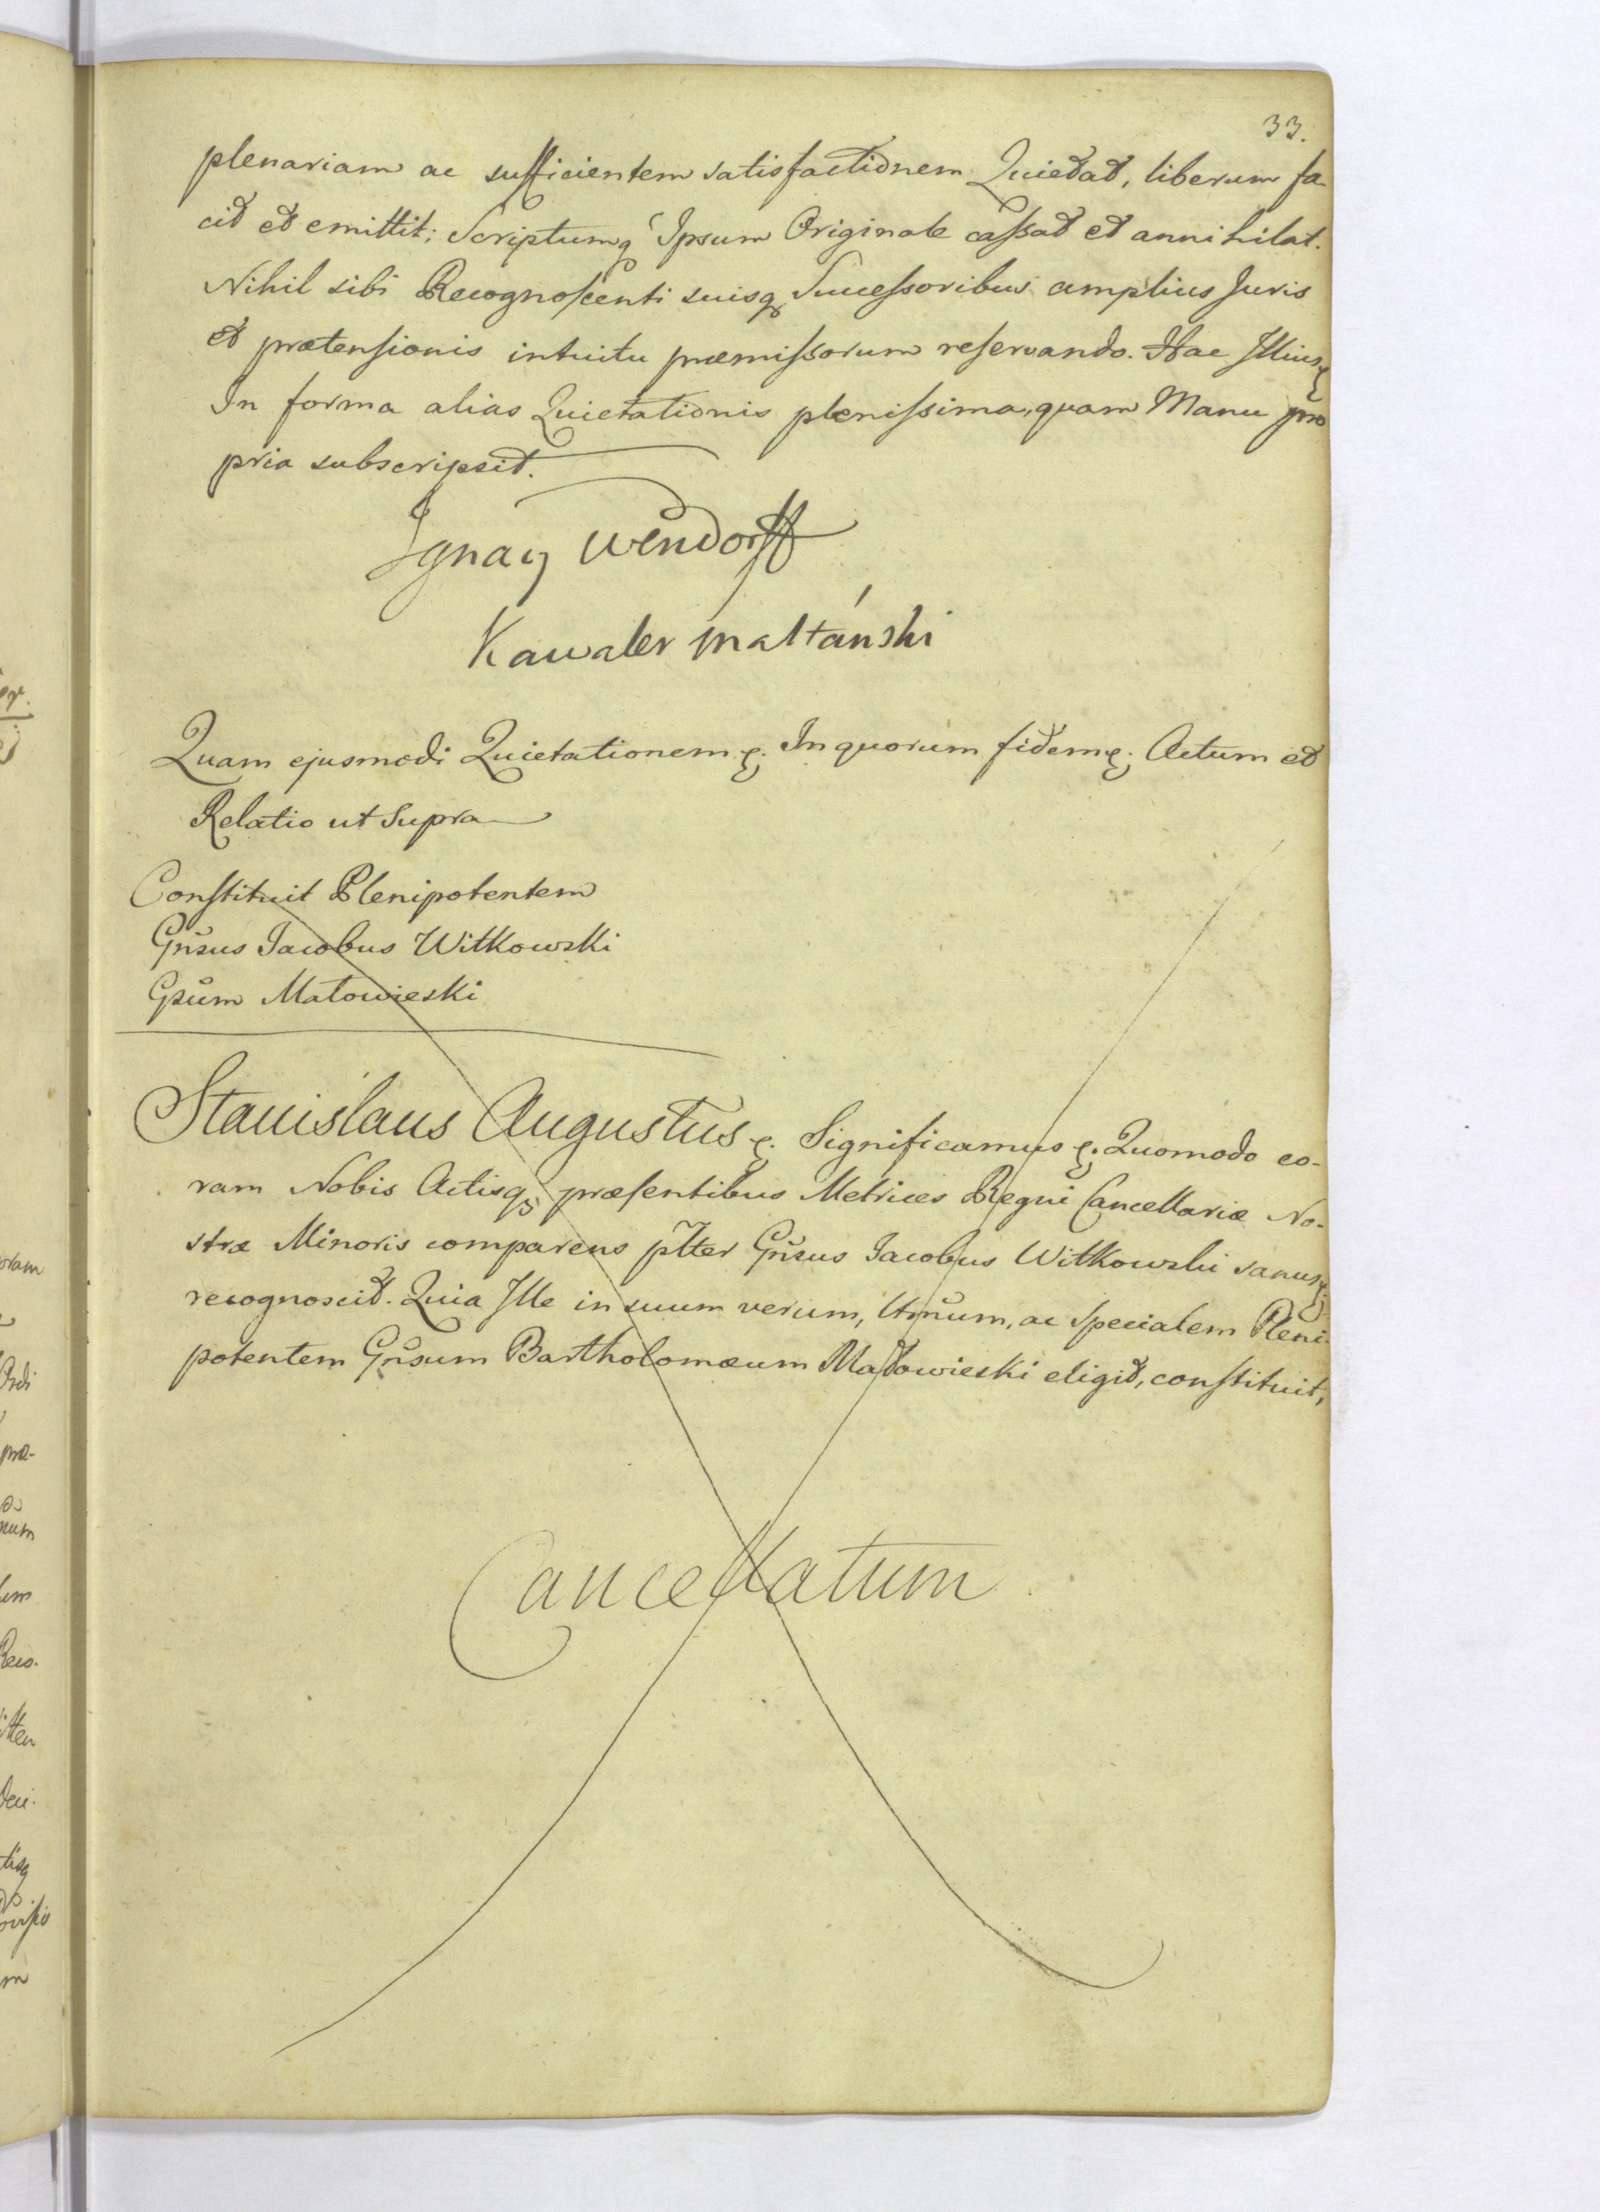 33.
plenariam ac sufficientem satisfactionem Quietat, liberum fa
cit et emittit; Scriptumq Ipsum Originale cassat et annihilat.
Nihil sibi Recognoscenti suisq Successoribus amplius Juris
et prætensionis intuitu præmissorum reservando. Hac Illius
In forma alias Quietationis plenissima, quam Manu pro
pria subscripsit.
Ignacy Wendorff
Kawaler maltański
Quam ejusmodi Quietationem In quorum fidem Actum et
Relatio ut Supra
Constituit Plenipotentem
Gnsus Jacobus Witkowski
Gsum Matowieski
Stanislaus Augustus Significamus Quomodo co-
ram Nobis Actisq præsentibus Metrices Regni Cancellariæ No-
stræ Minoris comparens pltter Gnsus Jacobus Witkowski sanus
recognoscit. Quia Ille in suum verum, ltmum, ac Specialem Pleni
potentem Gnsum Bartholomæum Matowieski eligit, constituit,
Cancellatum